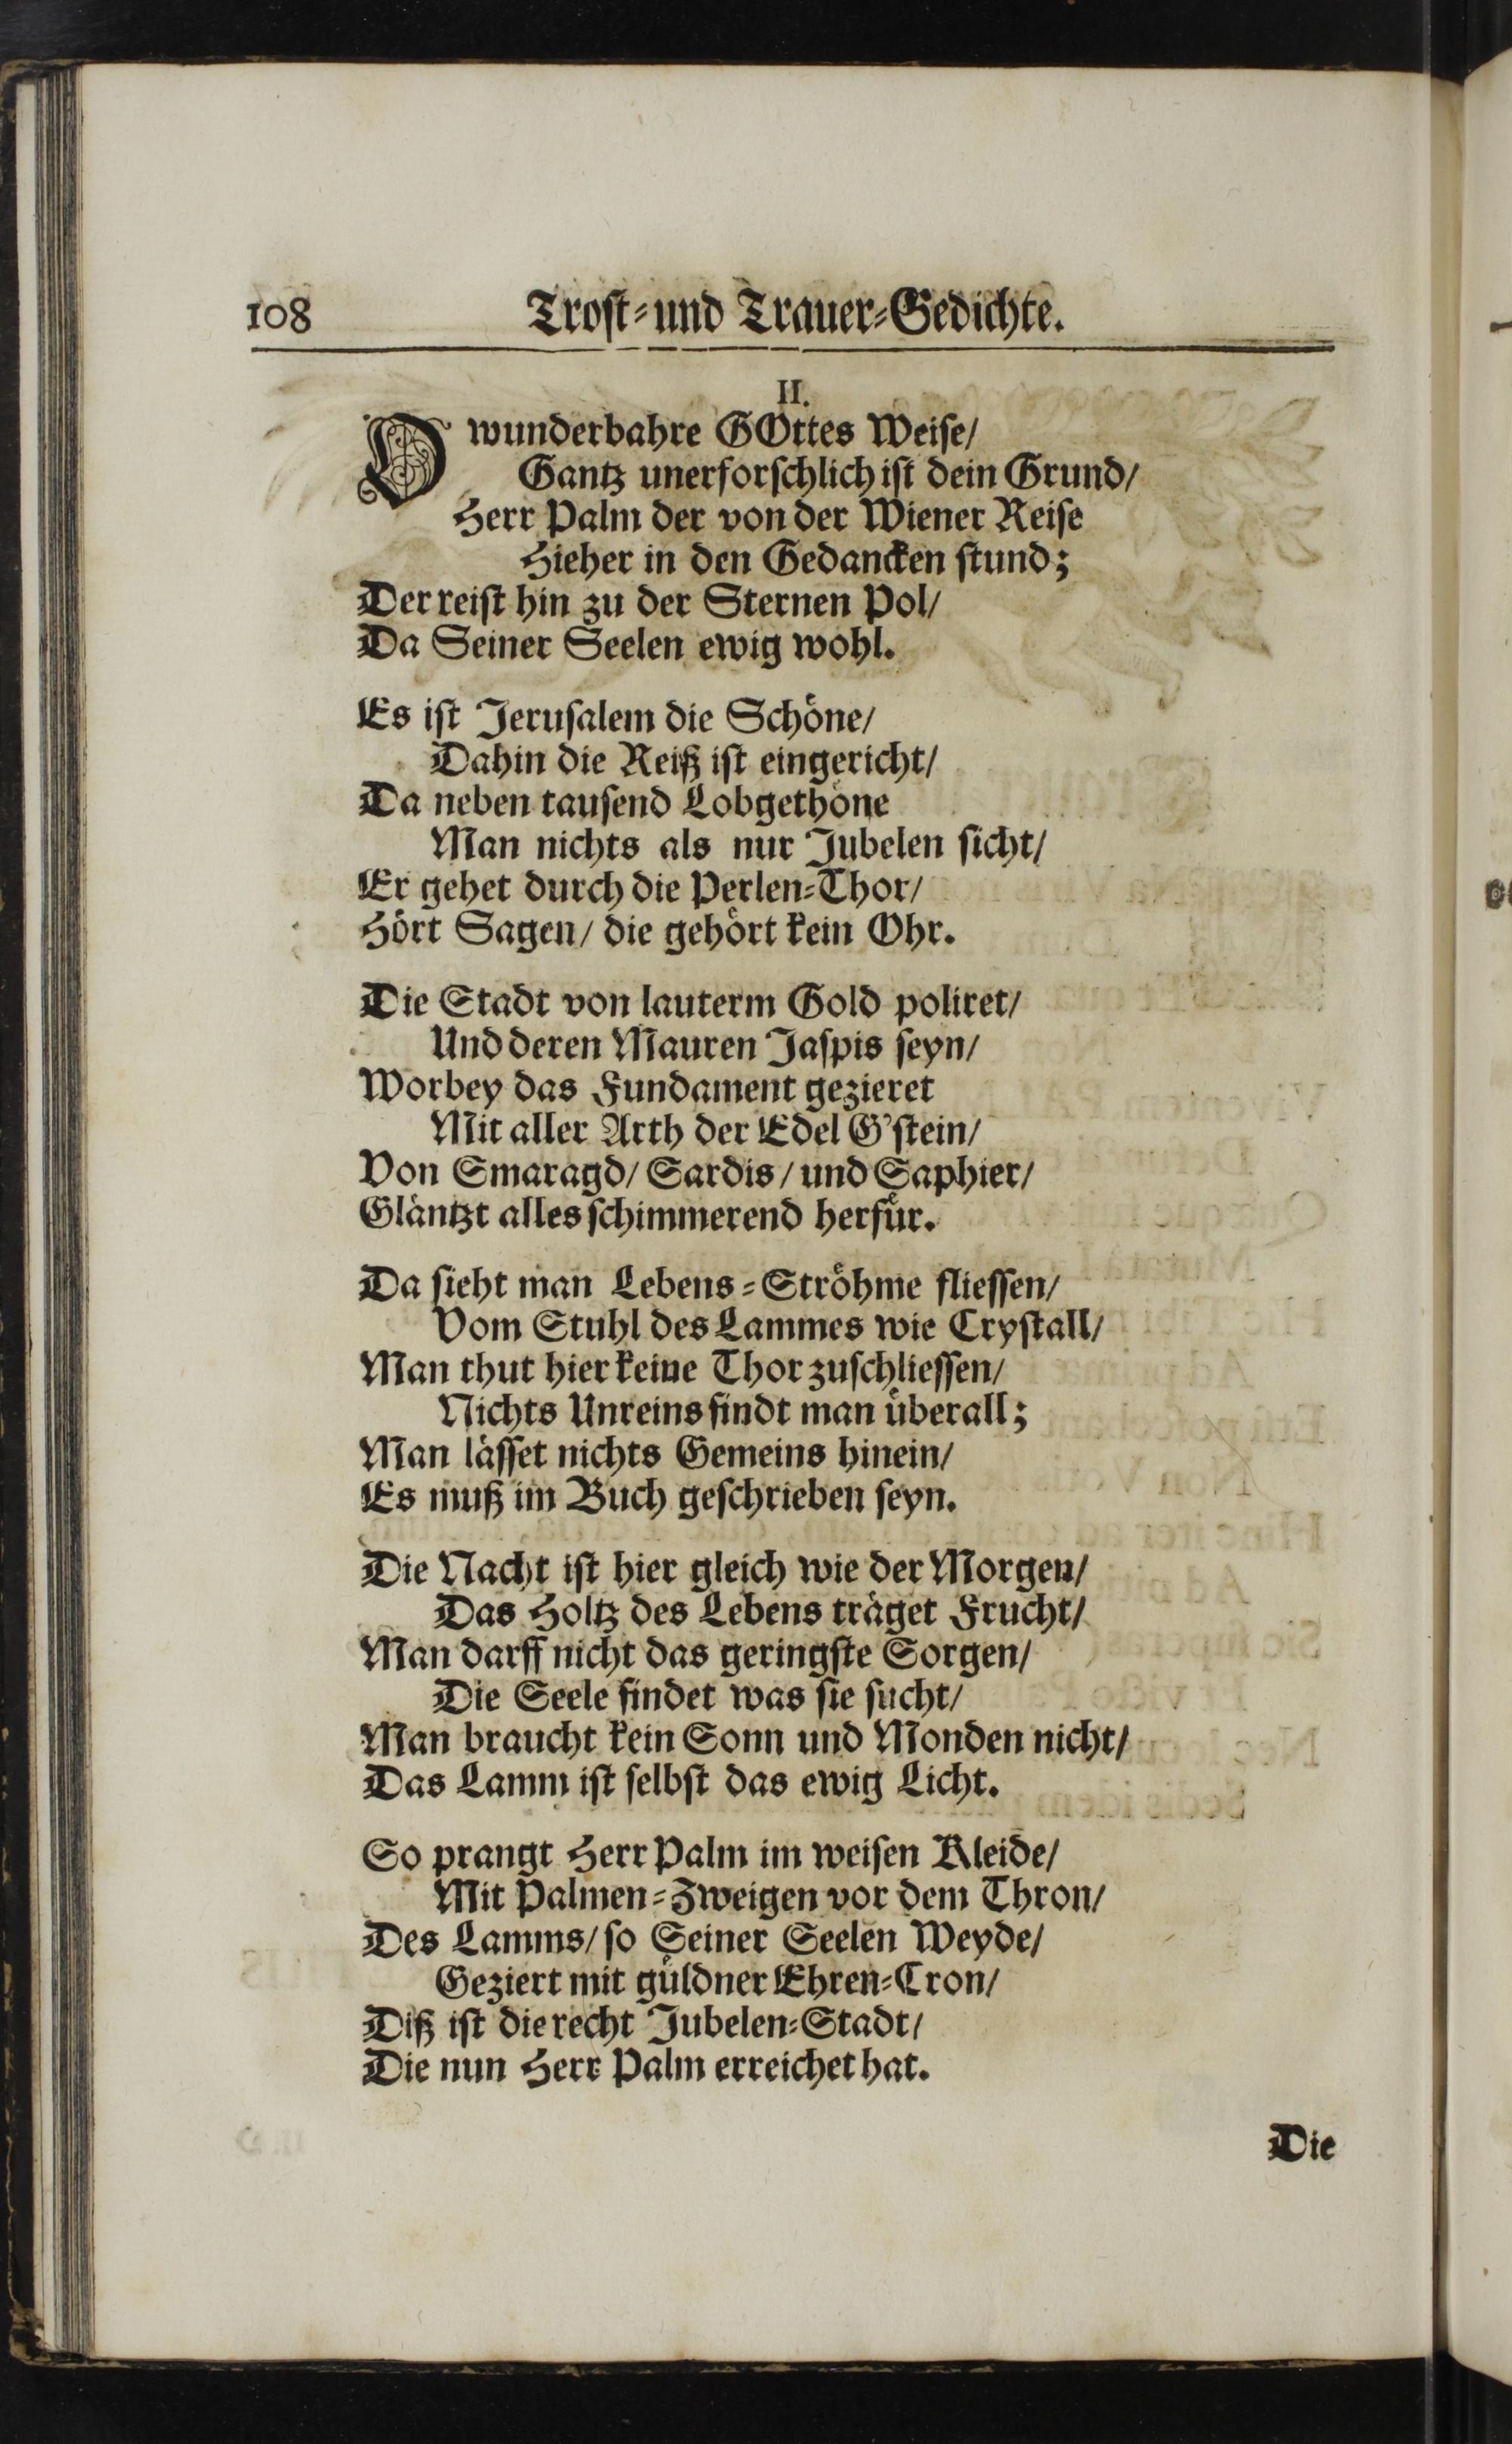 108 Trost-und Trauer-Gedichte.
II.
O wunderbahre GOttes Weise/
Gantz unerforschlich ist dein Grund/
Herr Palm der von der Wiener Reise
Hieher in den Gedancken stund;
Der reist hin zu der Sternen Pol/
Da Seiner Seelen ewig wohl.
Es ist Jerusalem die Schöne/
Dahin die Reiß ist eingericht/
Da neben tausend Lobgethöne
Man nichts als nur Jubelen sicht/
Er gehet durch die Perlen-Thor/
Hört Sagen/ die gehört kein Ohr.
Die Stadt von lauterm Gold poliret/
Und deren Mauren Jaspis seyn/
Worbey das Fundament gezieret
Mit aller Arth der Edel G'stein/
Von Smaragd/ Sardis/ und Saphier/
Gläntzt alles schimmerend herfür.
Da sieht man Lebens-Ströhme fliessen/
Vom Stuhl des Lammes wie Crystall/
Man thut hier keine Thor zuschliessen/
Nichts Unreins findt man überall;
Man lässet nichts Gemeins hinein/
Es muß im Buch geschrieben seyn.
Die Nacht ist hier gleich wie der Morgen/
Das Holtz des Lebens träget Frucht/
Man darff nicht das geringste Sorgen/
Die Seele findet was sie sucht/
Man braucht kein Sonn und Monden nicht/
Das Lamm ist selbst das ewig Licht.
So prangt Herr Palm im weisen Kleide/
Mit Palmen-Zweigen vor dem Thron/
Des Lamms/ so Seiner Seelen Weyde/
Geziert mit güldner Ehren-Cron/
Diß ist die recht Jubelen-Stadt/
Die nun Herr Palm erreichet hat.
Die